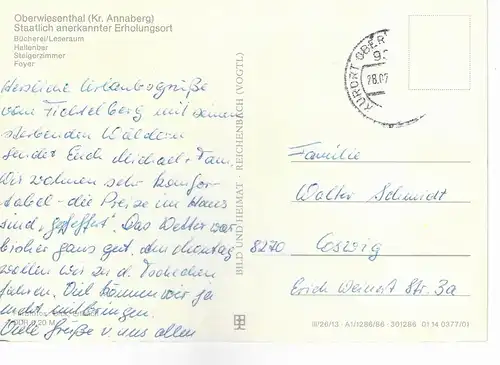 Oberwiesenthal (Kr. Annaberg)
Staatlich anerkannter Erholungsort
Bücherei/Leseraum
Hallenbar
Steigerzimmer
Foyer
Herzliche Urlaubsgrüße
vom Fichtelberg mit seinen
sterbenden Wäldern
sendet Euch Michael + Fam.
Wir wohnen sehr komfor-
tabel - die Preise im Haus
sind "gepfeffert". Das Wetter war
bisher ganz gut. Am Montag
wollen wir zu d. Tschechen
fahren. Viel können wir ja
nicht mitbringen.
Viele Grüße v. uns allen
DDR 0,20 M
BILD UND HEIMAT · REICHENBACH (VOGTL)
KURORT OBER
28.07
Familie
Walter Schmidt
8270 Coswig
Erich Weinert Str. 3a
III/26/13 · A1/1286/86 · 301286 01 14 0377/01